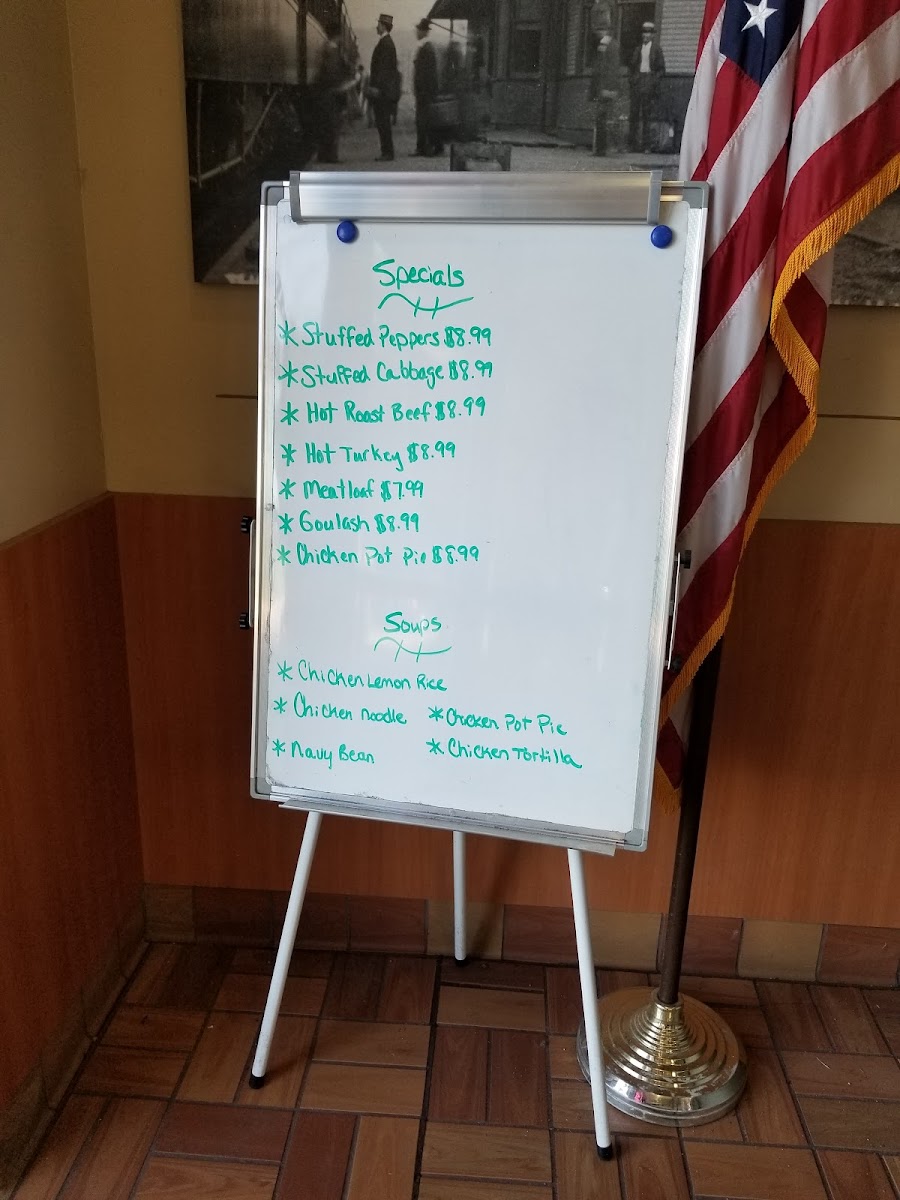 Specials
* Stuffed Peppers $8.99
* Stuffed Cabbage $8.99
* Hot Roast Beef $8.99
* Hot Turkey $8.99
* Meatloaf $7.99
* Goulash $8.99
* Chicken Pot Pie $8.99
Soups
* Chicken Lemon Rice
* Chicken Noodle * Chicken Pot Pie
* Navy Bean * Chicken Tortilla